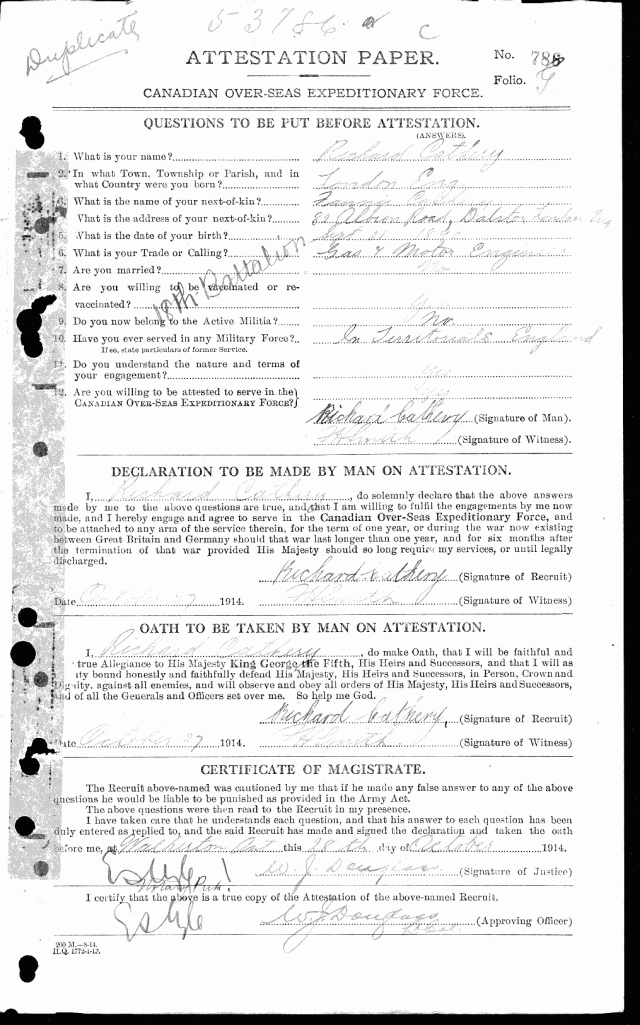 53786 a C
Duplicate
ATTESTATION PAPER.
No. 786
Folio.
CANADIAN OVER-SEAS EXPEDITIONARY FORCE.
QUESTIONS TO BE PUT BEFORE ATTESTATION.
(ANSWERS).
1. What is your name? Richard Cathery
2. In what Town, Township or Parish, and in
what Country were you born? London Eng
What is the name of your next-of-kin?
What is the address of your next-of-kin? 82 Albion Road, Dalston London Eng
5. What is the date of your birth? Sept
6. What is your Trade or Calling? Gas & Motor Engineer
7. Are you married? No
8. Are you willing to be vaccinated or re-
vaccinated? Yes
18th Battalion
9. Do you now belong to the Active Militia? No
10. Have you ever served in any Military Force? In Territorials England
If so, state particulars of former Service.
11. Do you understand the nature and terms of
your engagement? Yes
12. Are you willing to be attested to serve in the
CANADIAN OVER-SEAS EXPEDITIONARY FORCE? Yes
Richard Cathery (Signature of Man).
(Signature of Witness).
DECLARATION TO BE MADE BY MAN ON ATTESTATION.
I, Richard Cathery, do solemnly declare that the above answers
made by me to the above questions are true, and that I am willing to fulfil the engagements by me now
made, and I hereby engage and agree to serve in the Canadian Over-Seas Expeditionary Force, and
to be attached to any arm of the service therein, for the term of one year, or during the war now existing
between Great Britain and Germany should that war last longer than one year, and for six months after
the termination of that war provided His Majesty should so long require my services, or until legally
discharged.
Richard Cathery (Signature of Recruit)
Date October 27 1914. (Signature of Witness)
OATH TO BE TAKEN BY MAN ON ATTESTATION.
I, Richard Cathery, do make Oath, that I will be faithful and
true Allegiance to His Majesty King George the Fifth, His Heirs and Successors, and that I will as
ty bound honestly and faithfully defend His Majesty, His Heirs and Successors, in Person, Crown and
Dignity, against all enemies, and will observe and obey all orders of His Majesty, His Heirs and Successors,
and of all the Generals and Officers set over me. So help me God.
Richard Cathery, (Signature of Recruit)
Date October 27 1914. (Signature of Witness)
CERTIFICATE OF MAGISTRATE.
The Recruit above-named was cautioned by me that if he made any false answer to any of the above
questions he would be liable to be punished as provided in the Army Act.
The above questions were then read to the Recruit in my presence.
I have taken care that he understands each question, and that his answer to each question has been
duly entered as replied to, and the said Recruit has made and signed the declaration and taken the oath
before me, at Walkerton Ont this 28th day of October 1914.
W. J. Douglass (Signature of Justice)
I certify that the above is a true copy of the Attestation of the above-named Recruit.
W J Douglass (Approving Officer)
200 M.—8-14.
H.Q. 1772-4-13.